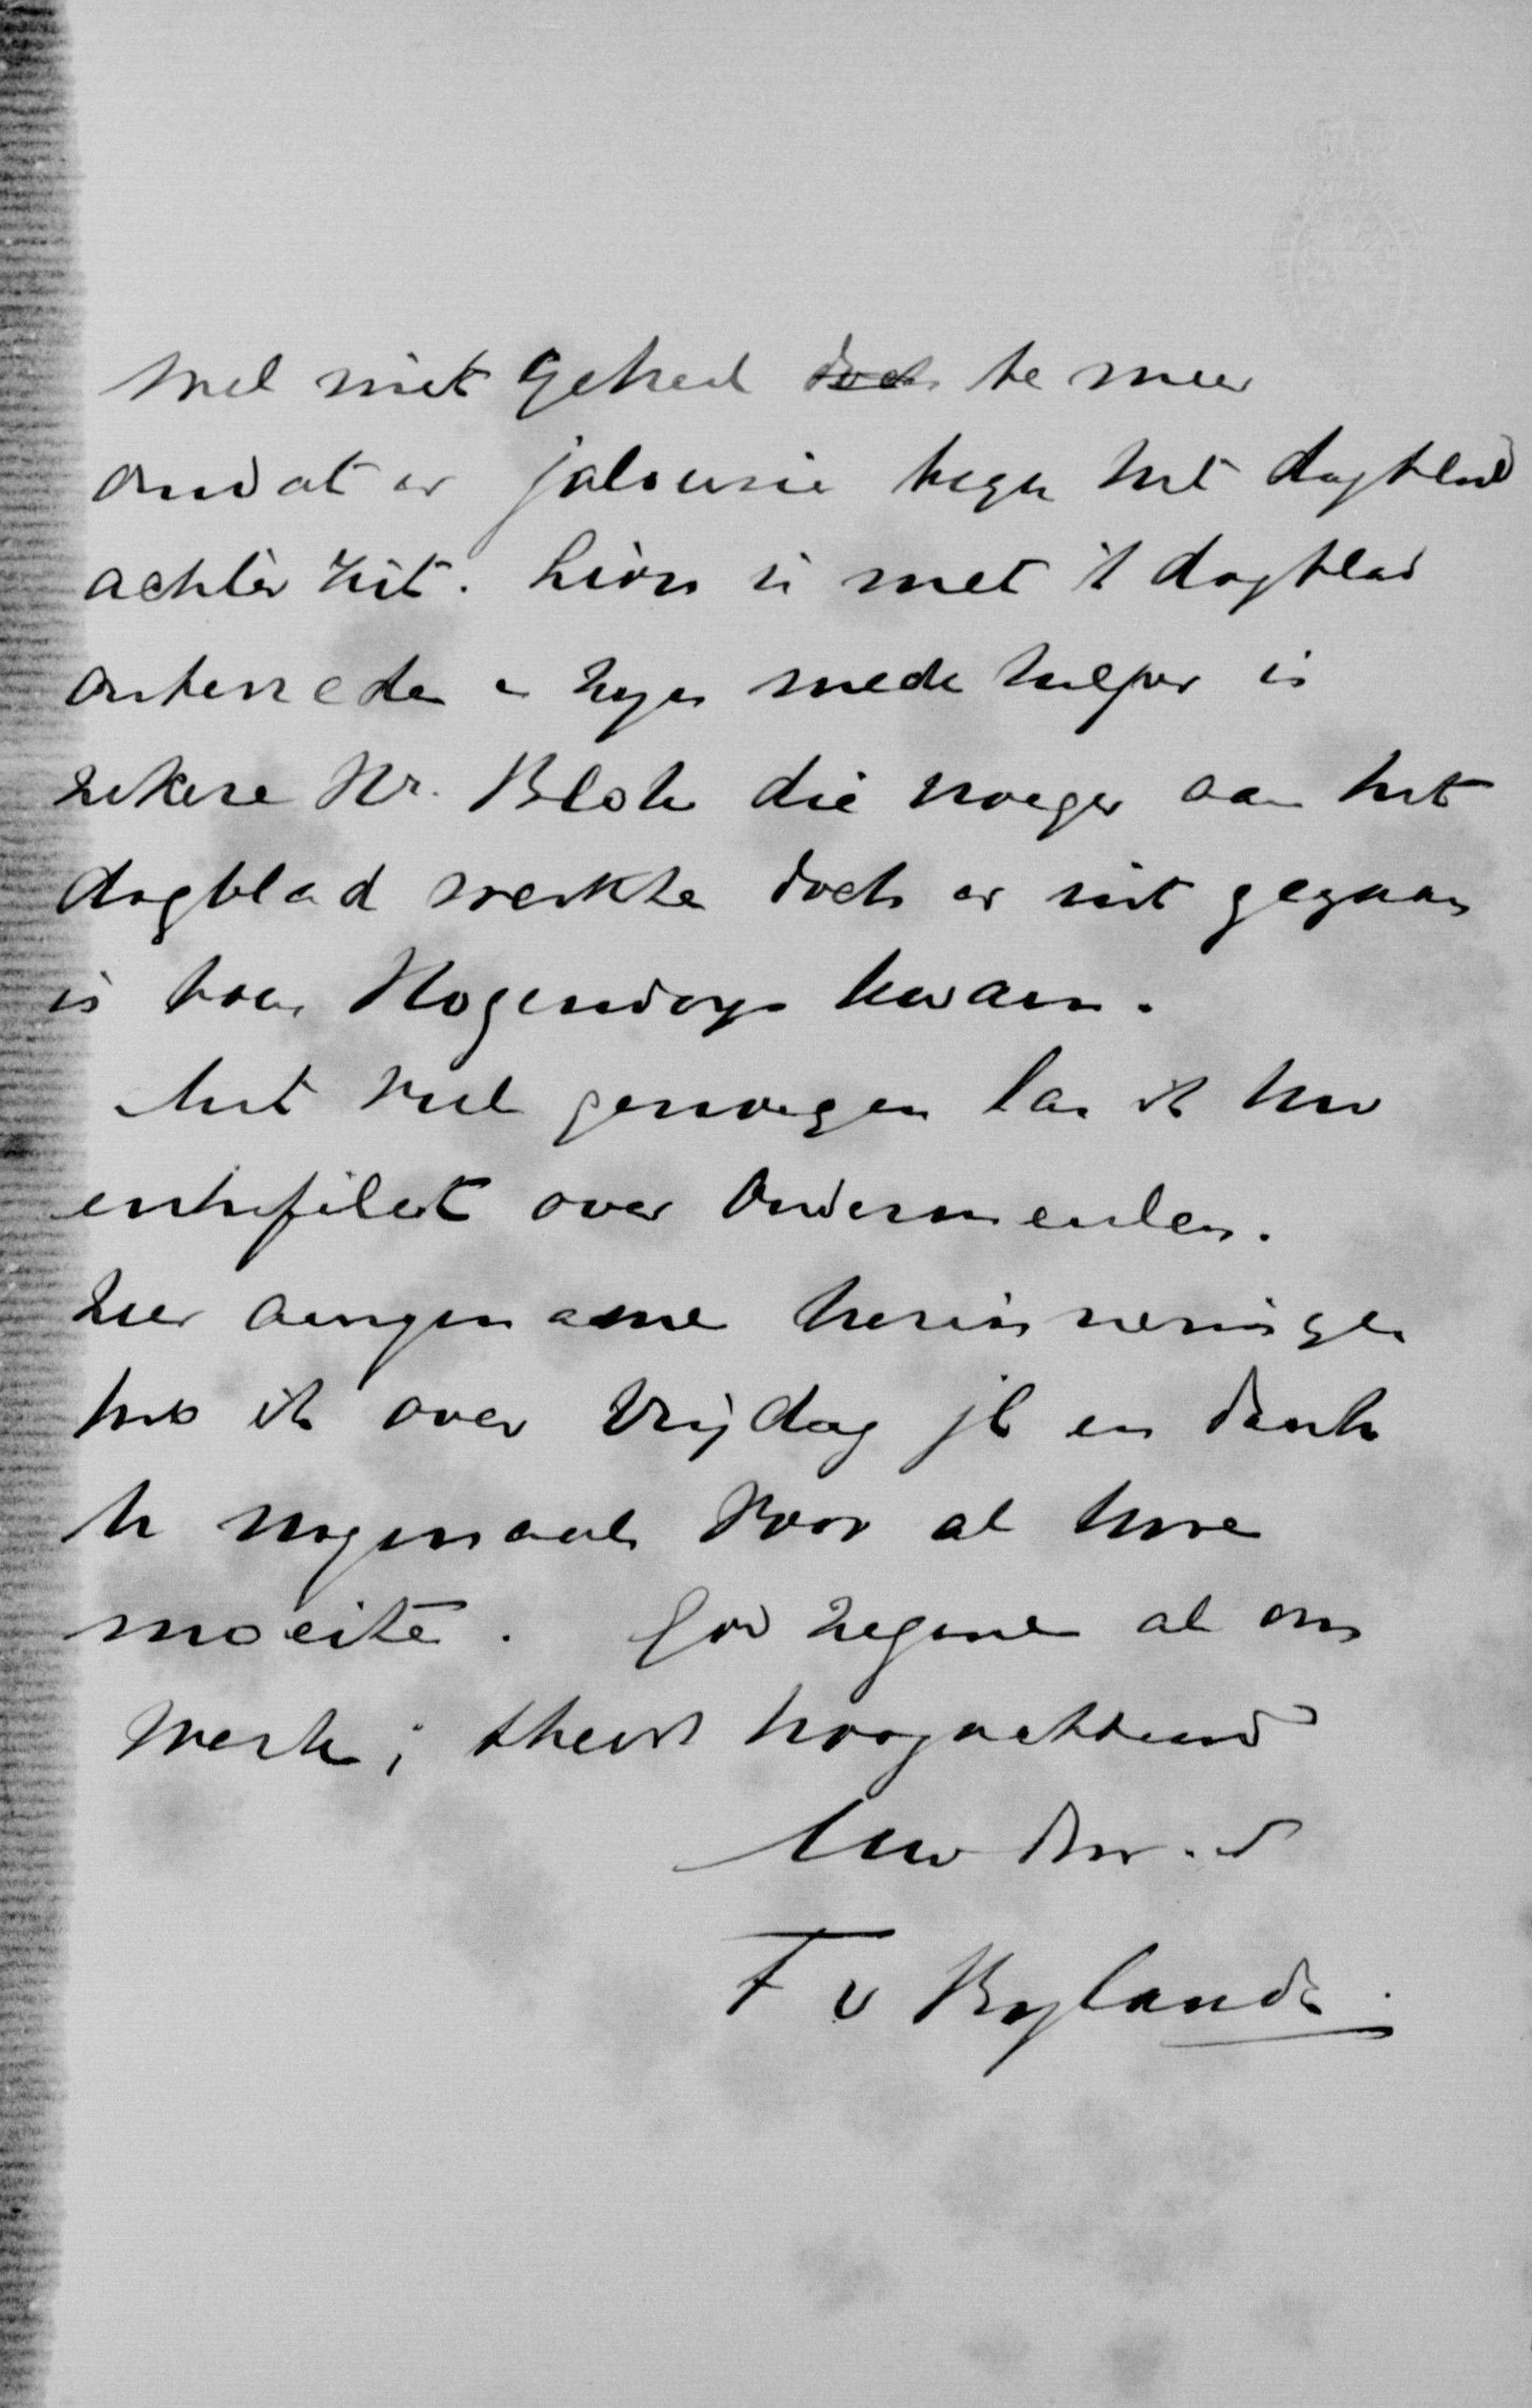 wel niet geheel doch te meer
omdat er jalousie tegen het dagblad
achter zit. Lion is met 't dagblad
ontevreden en zijn mede helper is
zekere Hr. Blok die vroeger aan het
dagblad werkte doch er uit gegaan
is toen Hogendorp kwam.
Met veel genoegen las ik Uw
entrefilet over Ondermeulen.
Zeer aangename herinneringen
heb ik over Vrijdag jl en dank
U nogmaals voor al Uwe
moeite. God zegene al ons
werk; steeds hoogachtend
Uw dw. d
F v Bylandt.